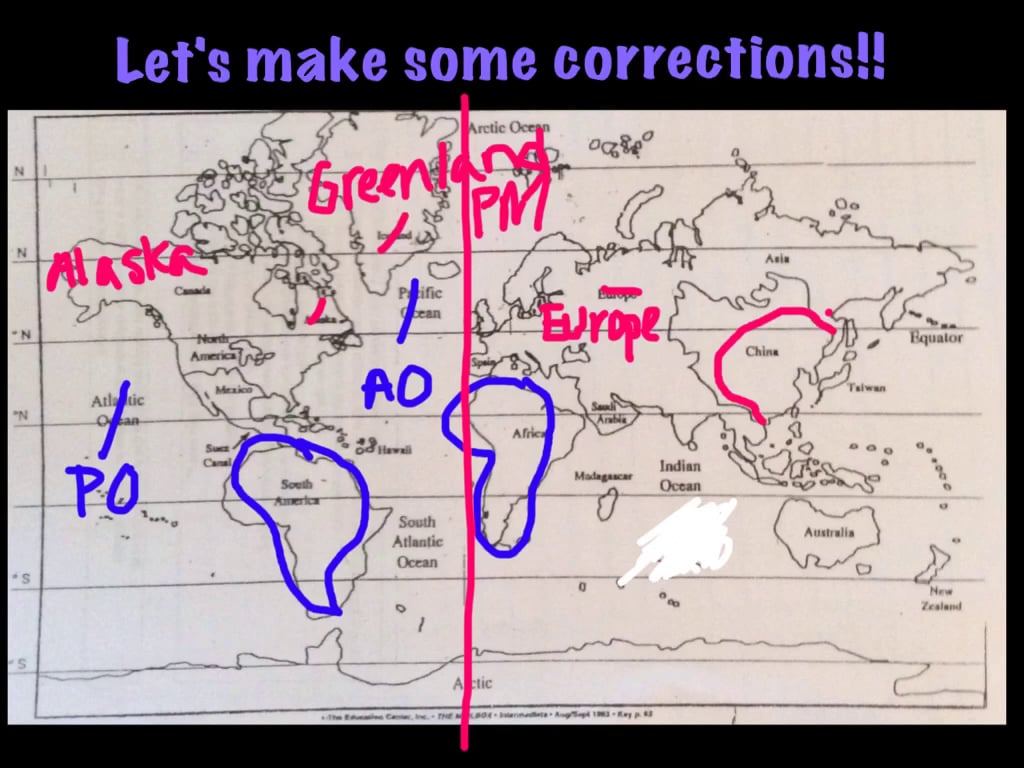 Let's make some corrections!!
Arctic Ocean
Greenland
PM
N
Iceland
N
Alaska
Canada
Asia
Pacific
Ocean
Europe
Europe
°N
North
America
China
Equator
Spain
AO
Mexico
Taiwan
Atlantic
Ocean
°N
Saudi
Arabia
Africa
Suez
Canal
Hawaii
PO
South
America
Madagascar
Indian
Ocean
South
Atlantic
Ocean
Australia
°S
New
Zealand
°S
Arctic
©The Education Center, Inc. • THE MAILBOX • Intermediate • Aug/Sept 1993 • Key p. 63